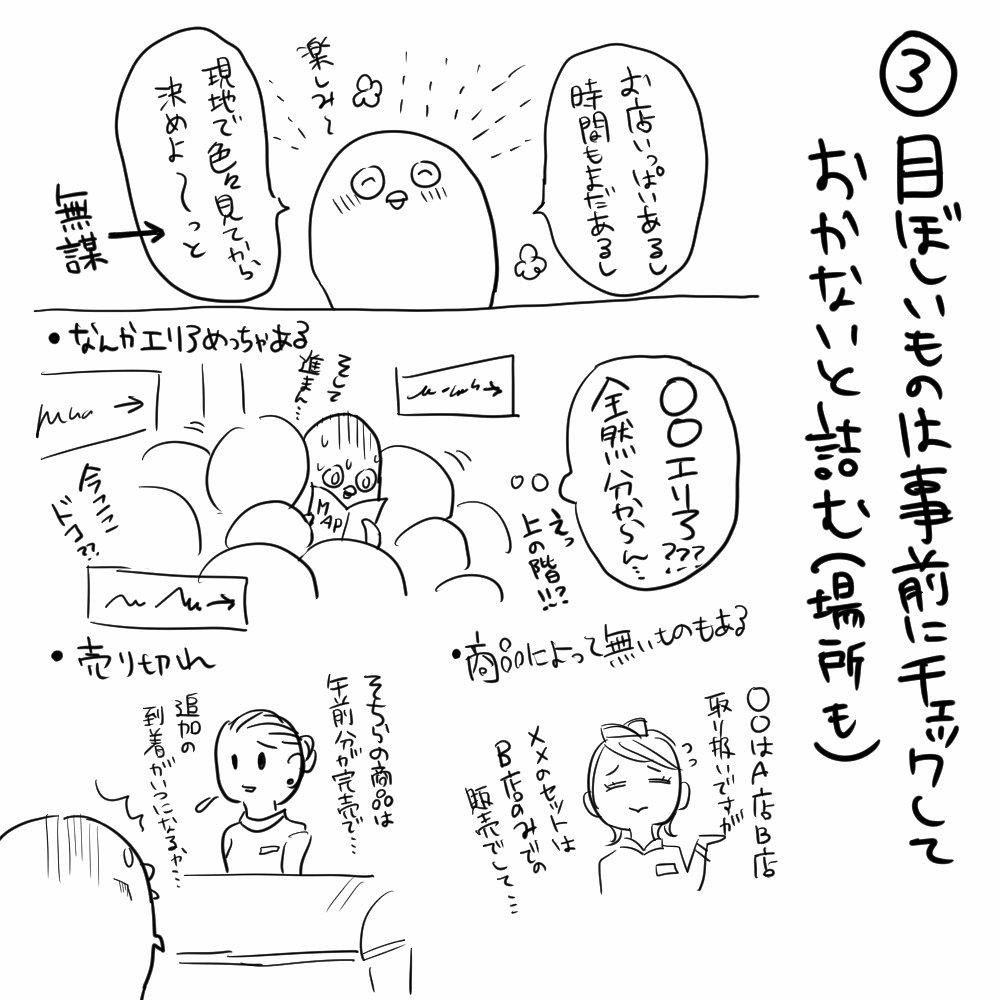 ③目ぼしいものは事前にチェックして
おかないと詰む(場所も)
お店いっぱいあるし
時間もまだあるし
楽しみ〜
現地で色々見てから
決めよ〜っと
無謀
・なんかエリアめっちゃある
〇〇エリア???
全然分からん…
えっ
上の階!!?
そして
進まん…
MAP
今ここ
ドコ??
・商品によって無いものもある
〇〇はA店B店
取り扱いですが
××のセットは
B店のみでの
販売でして…
・売り切れ
そちらの商品は
午前分が完売で…
追加の
到着がいつになるか…